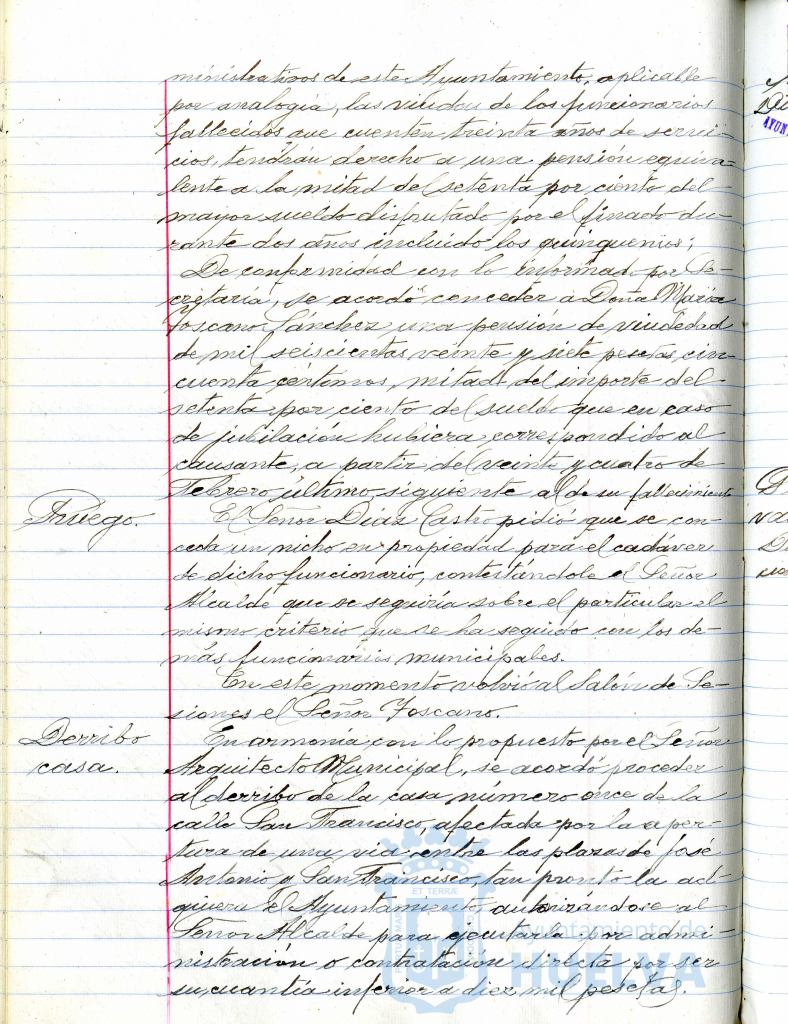 ministrativos de este Ayuntamiento, aplicable
por analogía, las viudas de los funcionarios
fallecidos que cuenten treinta años de servi-
cios, tendrán derecho a una pensión equiva-
lente a la mitad del setenta por ciento del
mayor sueldo disfrutado por el finado du-
rante dos años incluido los quinquenios;
De conformidad con lo informado por Se-
cretaría, se acordó conceder a Doña María
Toscano Sánchez una pensión de viudedad
de mil seiscientas veinte y siete pesetas cin-
cuenta céntimos, mitad del importe del
setenta por ciento del sueldo que en caso
de jubilación hubiera correspondido al
causante, a partir del veinte y cuatro de
Febrero último, siguiente al de su fallecimiento
Ruego.
El Señor Díaz Castro pidió que se con-
ceda un nicho en propiedad para el cadáver
de dicho funcionario, contestándole el Señor
Alcalde que se seguiría sobre el particular el
mismo criterio que se ha seguido con los de-
más funcionarios municipales.
En este momento volvió al Salón de Se-
siones el Señor Toscano.
Derribo
casa.
En armonía con lo propuesto por el Señor
Arquitecto Municipal, se acordó proceder
al derribo de la casa número once de la
calle San Francisco, afectada por la aper-
tura de una vía entre las plazas de José
Antonio y San Francisco, tan pronto la ad-
quiera el Ayuntamiento autorizandose al
Señor Alcalde para ejecutarla por admi-
nistración o contratación directa por ser
su cuantía inferior a diez mil pesetas.
Ayuntamiento de
HUELVA